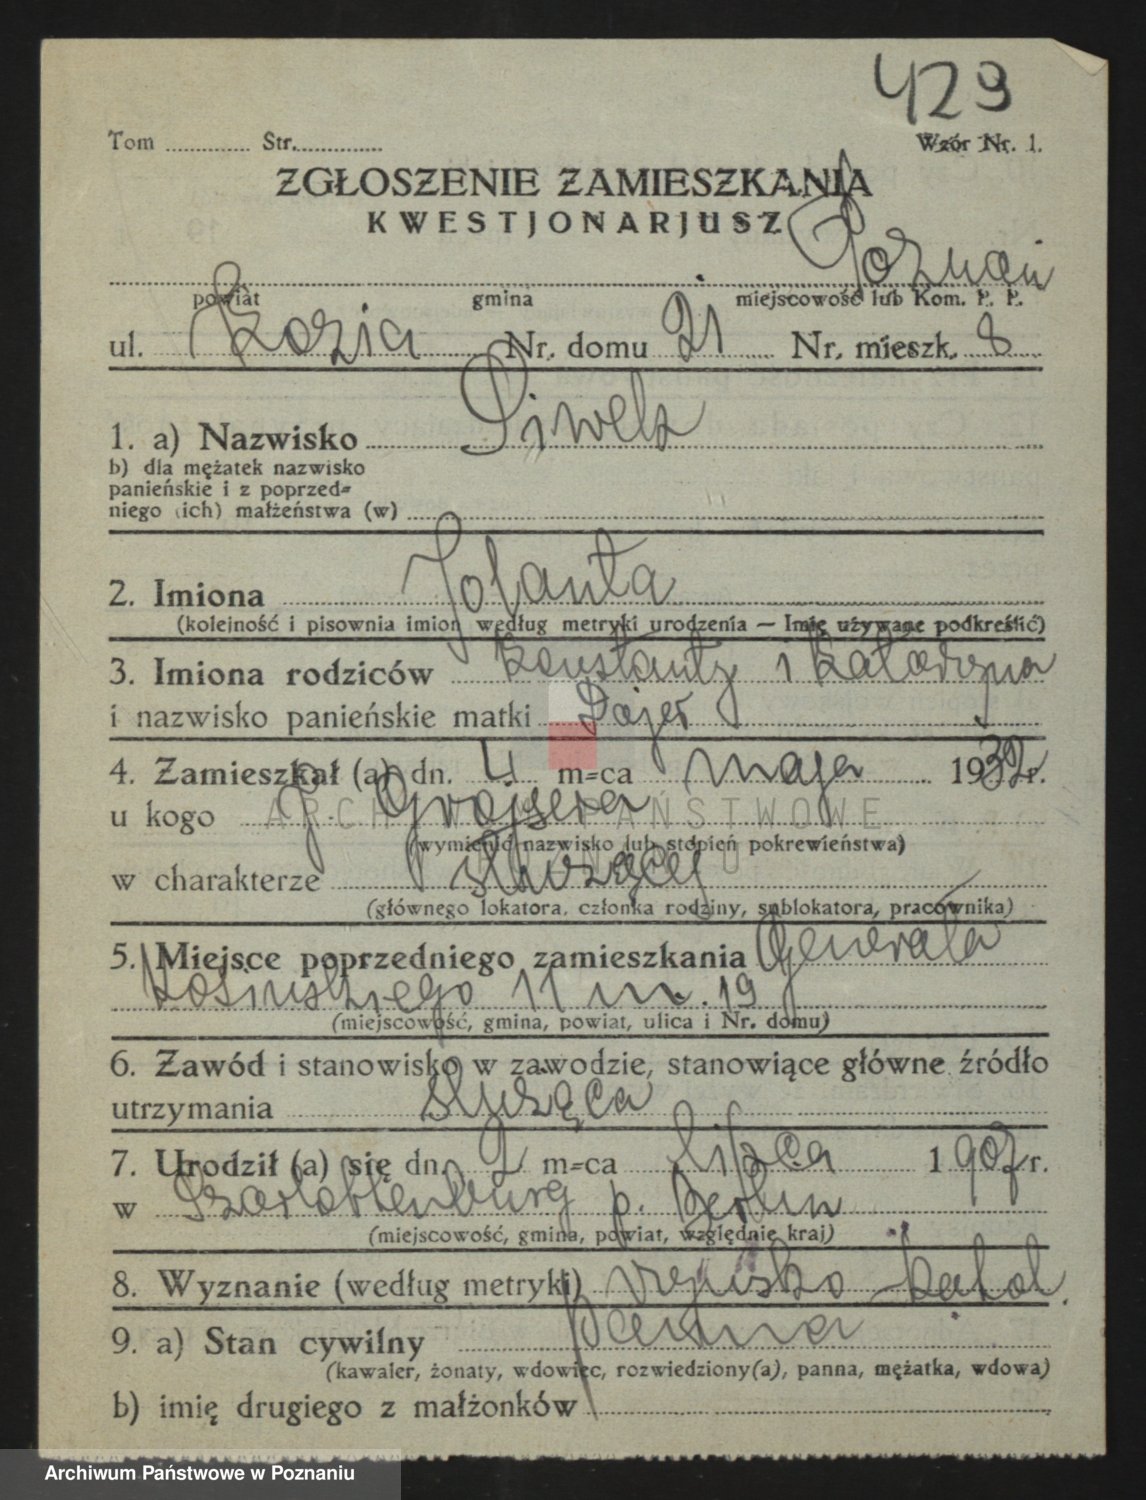 429
Tom ............ Str.............. Wzór Nr. 1.
ZGŁOSZENIE ZAMIESZKANIA
KWESTJONARJUSZ
Poznań
powiat gmina miejscowość lub Kom. P. P.
ul. Kozia Nr. domu 21 Nr. mieszk. 8
1. a) Nazwisko Piwek
b) dla mężatek nazwisko
panieńskie i z poprzed-
niego (ich) małżeństwa (w)
2. Imiona Jolanta
(kolejność i pisownia imion według metryki urodzenia — Imię używane podkreślić)
3. Imiona rodziców Konstanty i Katarzyna
i nazwisko panieńskie matki Dajer
4. Zamieszkał (a) dn. 4 m-ca maja 1932 r.
u kogo J. Grojsera
(wymienić nazwisko lub stopień pokrewieństwa)
w charakterze służącej
(głównego lokatora, członka rodziny, sublokatora, pracownika)
5. Miejsce poprzedniego zamieszkania Generała
Kosińskiego 11 m. 19
(miejscowość, gmina, powiat, ulica i Nr. domu)
6. Zawód i stanowisko w zawodzie, stanowiące główne źródło
utrzymania służąca
7. Urodził (a) się dn. 2 m-ca lipca 1907 r.
w Szarlottenburg p. Berlin
(miejscowość, gmina, powiat, względnie kraj)
8. Wyznanie (według metryki) rzymsko-katol.
9. a) Stan cywilny panna
(kawaler, żonaty, wdowiec, rozwiedziony(a), panna, mężatka, wdowa)
b) imię drugiego z małżonków
ARCHIWUM PAŃSTWOWE
Archiwum Państwowe w Poznaniu